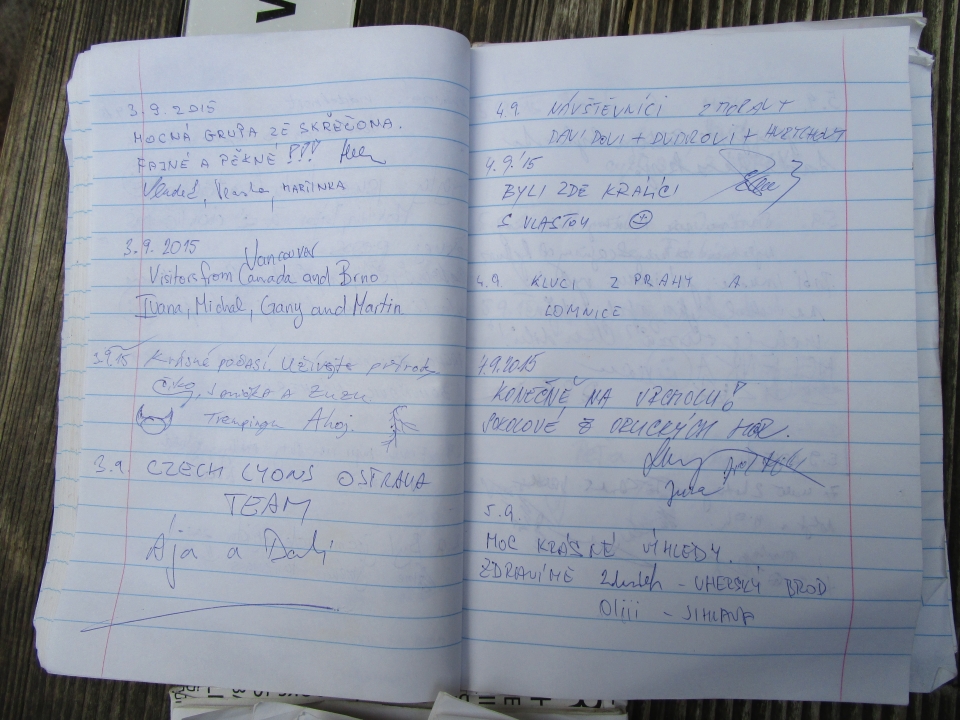 3.9.2015
MOCNÁ GRUPA ZE SKŘEČONA.
FAJNÉ A PĚKNÉ !!!
MARTINKA
3.9.2015
Vancouver
Visitors from Canada and Brno
Ivana, Michal, Gany and Martin
3.9.15 Krásné počasí. Užívejte přírody
Čiko, a Zuzu
Trempingu Ahoj.
3.9. CZECH LYONS OSTRAVA
TEAM
Ája a
4.9. NÁVŠTĚVNÍCI Z MORAVY
DAVIDOVI +
4.9.'15
BYLI ZDE KRÁLÍCI
S VLASTOU
4.9. KLUCI Z PRAHY A
LOMNICE
4.9.2015
KONEČNĚ NA VRCHOLU!
SOKOLOVÉ Z ORLICKÝCH HOR.
Jura
5.9.
MOC KRÁSNÉ VÍHLEDY.
ZDRAVÍME - UHERSKÝ BROD
- JIHLAVA